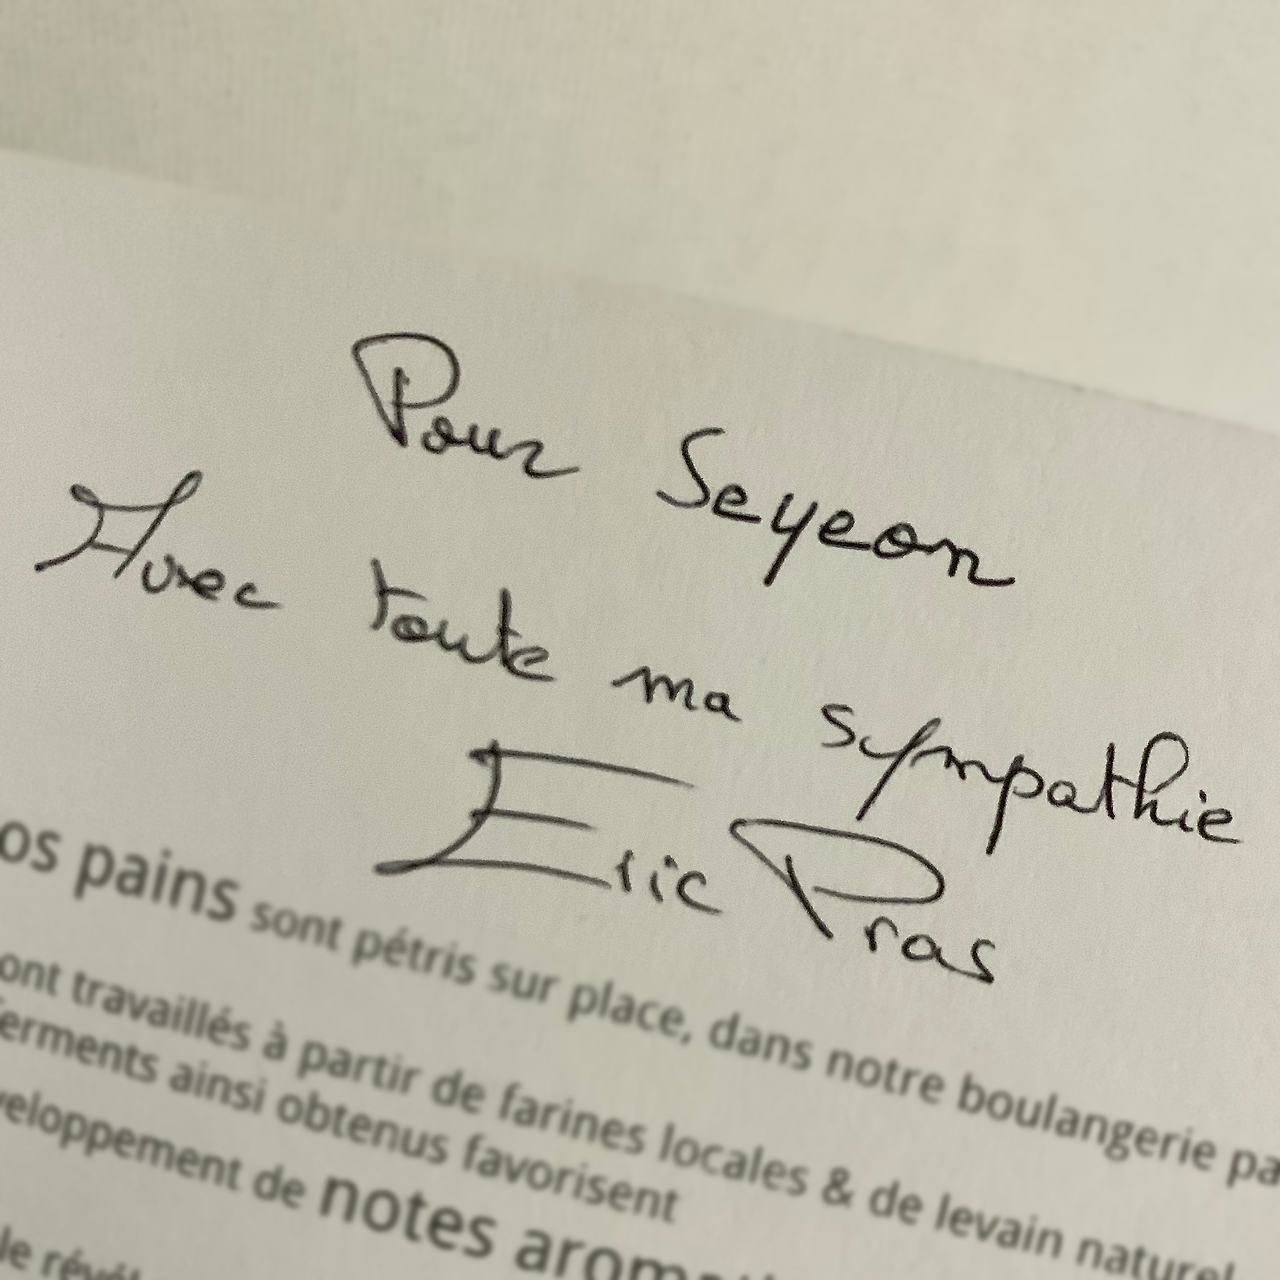 Pour Seyeon
Avec toute ma sympathie
Eric Pras
os pains sont pétris sur place, dans notre boulangerie pa
ont travaillés à partir de farines locales & de levain naturel
ferments ainsi obtenus favorisent
veloppement de notes aromati
le révél